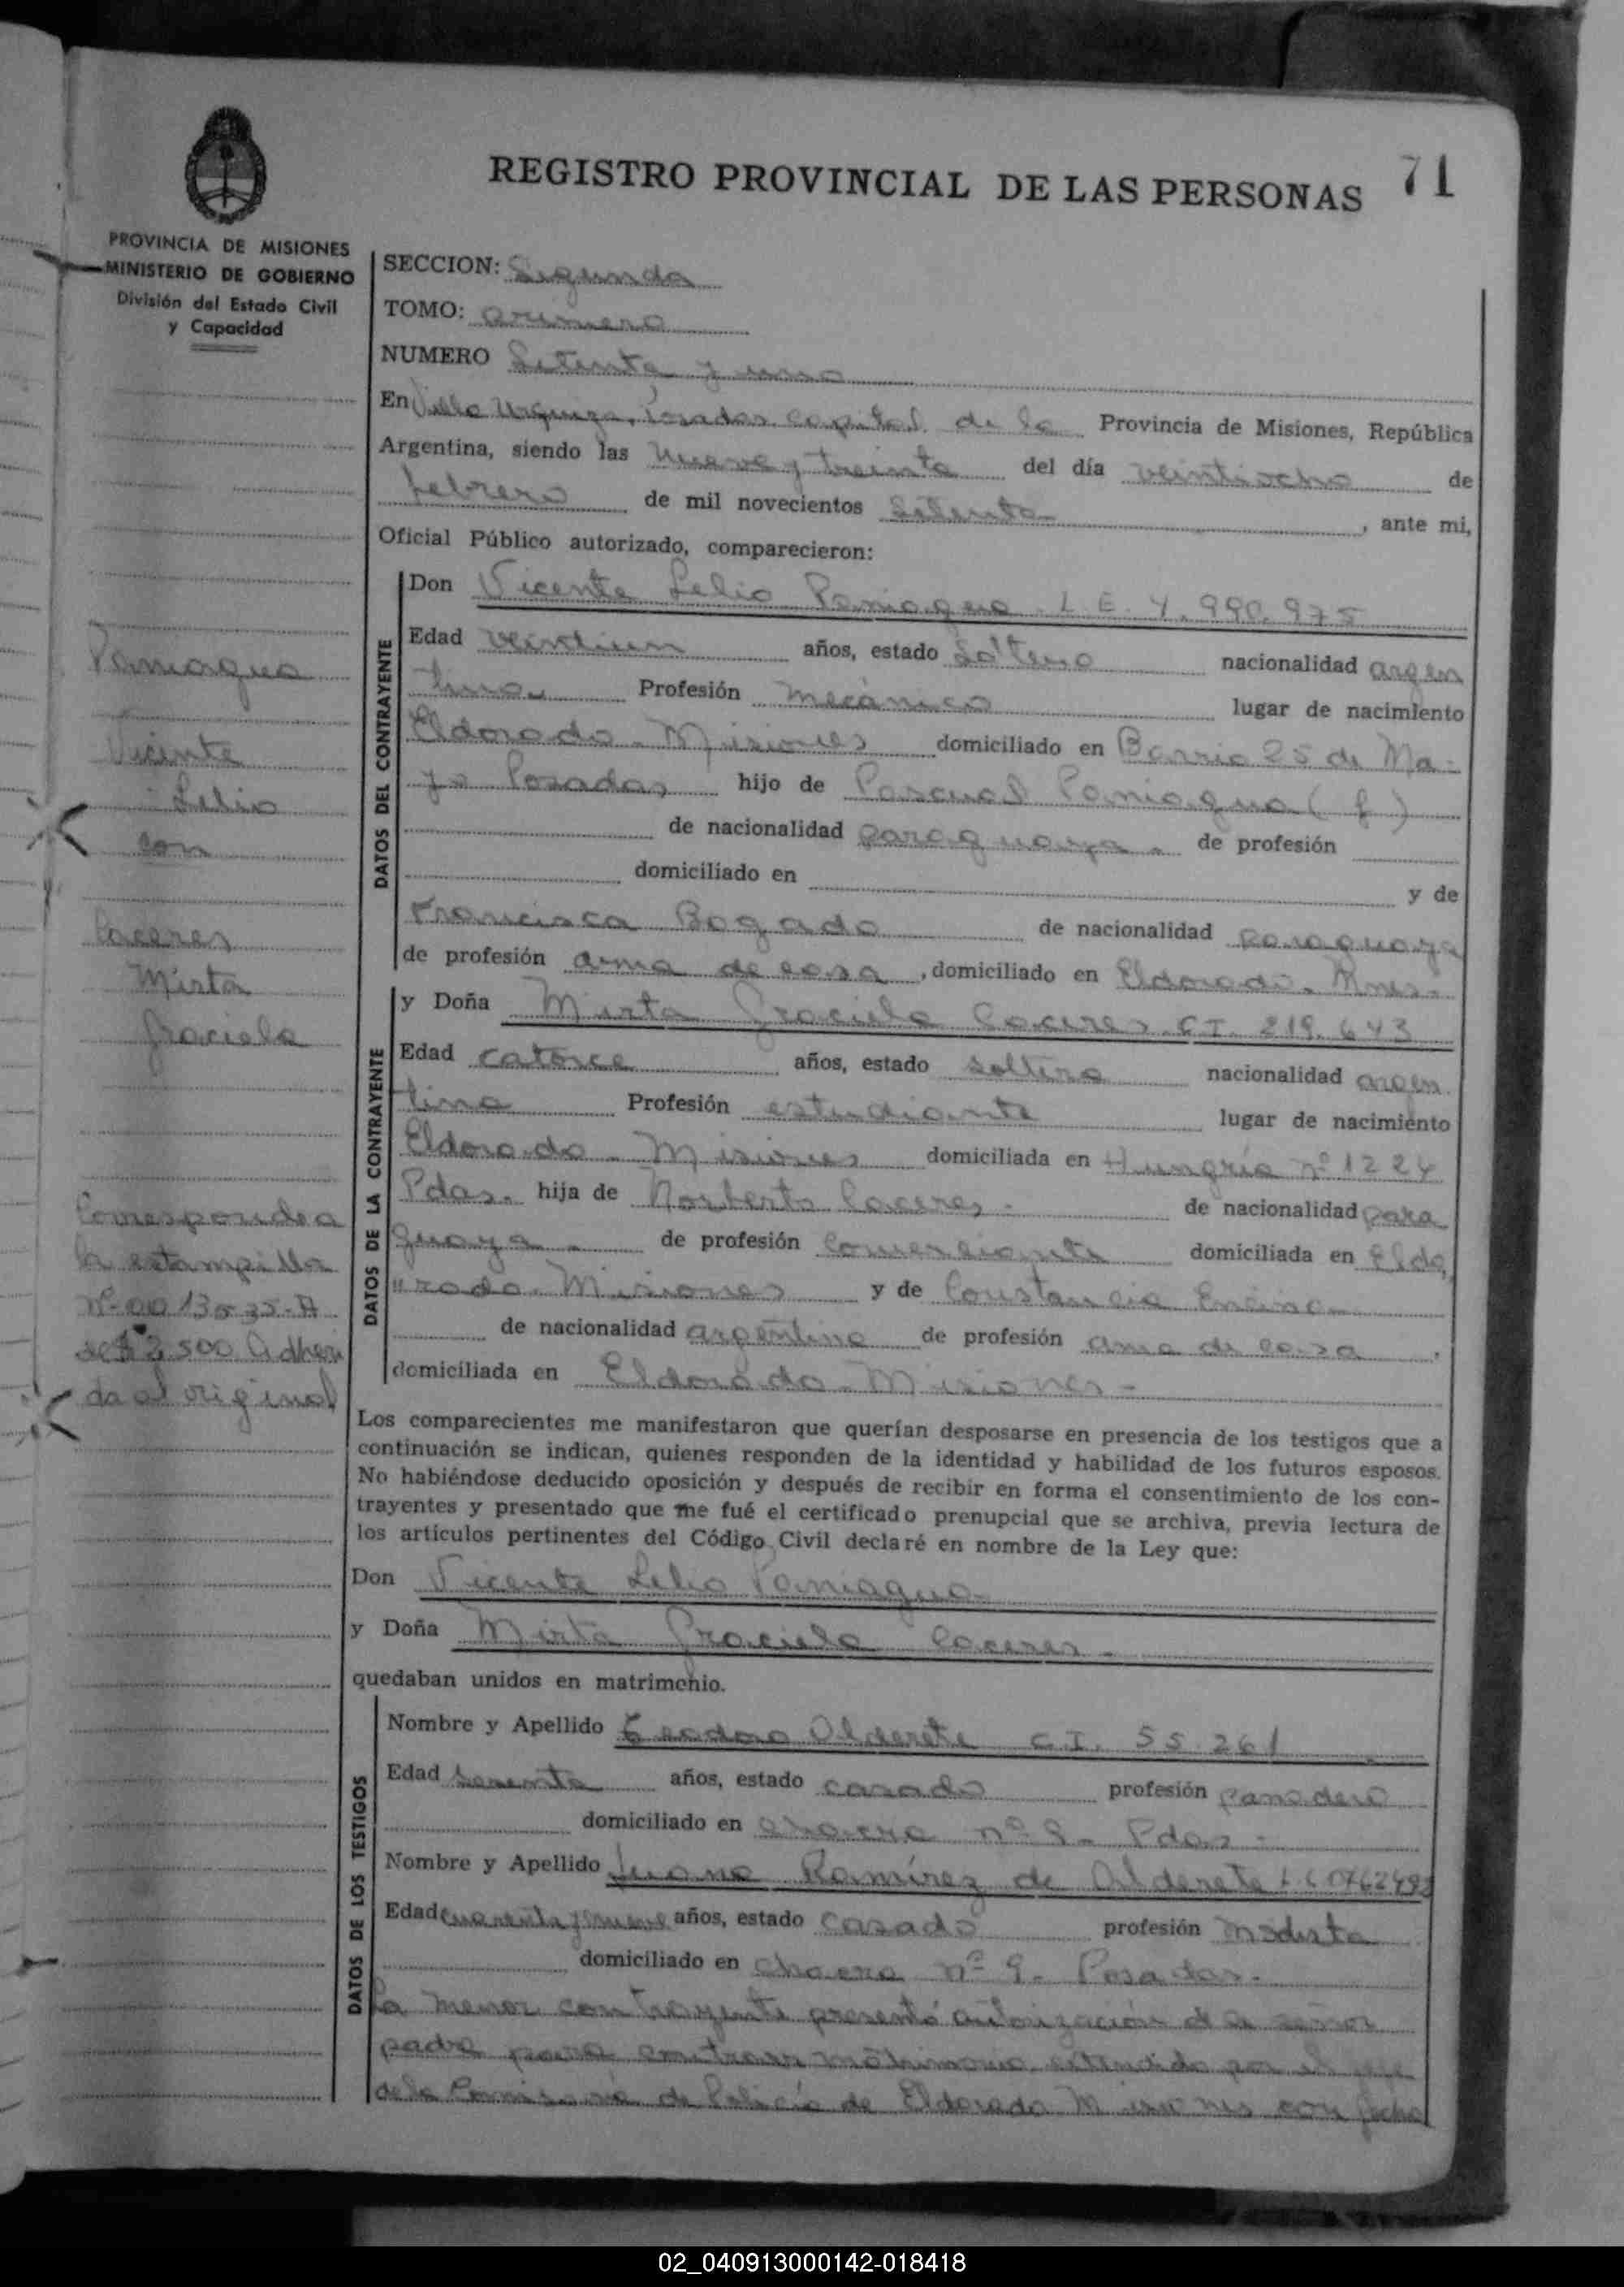 REGISTRO PROVINCIAL DE LAS PERSONAS 71
PROVINCIA DE MISIONES
MINISTERIO DE GOBIERNO
División del Estado Civil
y Capacidad
SECCION: Segunda
TOMO: primero
NUMERO Setenta y uno
En Villa Urquiza, Posadas capital de la Provincia de Misiones, República
Argentina, siendo las nueve y treinta del día veintiocho de
febrero de mil novecientos setenta, ante mi,
Oficial Público autorizado, comparecieron:
DATOS DEL CONTRAYENTE
Don Vicente Lelio Paniagua L.E. 7.990.975
Edad veintiun años, estado Soltero nacionalidad argen
tino. Profesión mecánico lugar de nacimiento
Eldorado - Misiones domiciliado en Barrio 25 de Ma-
yo Posadas hijo de Pascual Paniagua (f)
de nacionalidad paraguaya. de profesión
domiciliado en y de
Francisca Bogado de nacionalidad paraguaya
de profesión ama de casa, domiciliado en Eldorado. Mnes.
DATOS DE LA CONTRAYENTE
y Doña Mirta Graciela Caceres C.I. 219.643
Edad catorce años, estado soltera nacionalidad argen
tina Profesión estudiante lugar de nacimiento
Eldorado - Misiones domiciliada en Hungría nº 1224
Pdas. hija de Norberto Caceres - de nacionalidad para
guaya - de profesión Comerciante domiciliada en Eldo
rado. Misiones y de Constancia Encina
de nacionalidad argentina de profesión ama de casa,
domiciliada en Eldorado - Misiones -
Los comparecientes me manifestaron que querían desposarse en presencia de los testigos que a
continuación se indican, quienes responden de la identidad y habilidad de los futuros esposos.
No habiéndose deducido oposición y después de recibir en forma el consentimiento de los con-
trayentes y presentado que me fué el certificado prenupcial que se archiva, previa lectura de
los artículos pertinentes del Código Civil declaré en nombre de la Ley que:
Don Vicente Lelio Paniagua-
y Doña Mirta Graciela Caceres -
quedaban unidos en matrimonio.
DATOS DE LOS TESTIGOS
Nombre y Apellido Teodoro Alderete C.I. 55.261
Edad sesenta años, estado casado profesión panadero
domiciliado en chacra nº 9- Pdas -
Nombre y Apellido Juana Ramírez de Alderete L.C.
Edad cuarenta y nueve años, estado casada profesión modista
domiciliado en chacra nº 9. Posadas.
La menor contrayente presentó autorización de su señor
padre para contraer matrimonio extendido por el jefe
de la Comisaría de Policía de Eldorado Misiones con fecha
Paniagua
Vicente
Lelio
con
Caceres
Mirta
Graciela
Corresponde a
la estampilla
nº 0013535-A
de $ 2,500 adheri
da al original
02_040913000142-018418